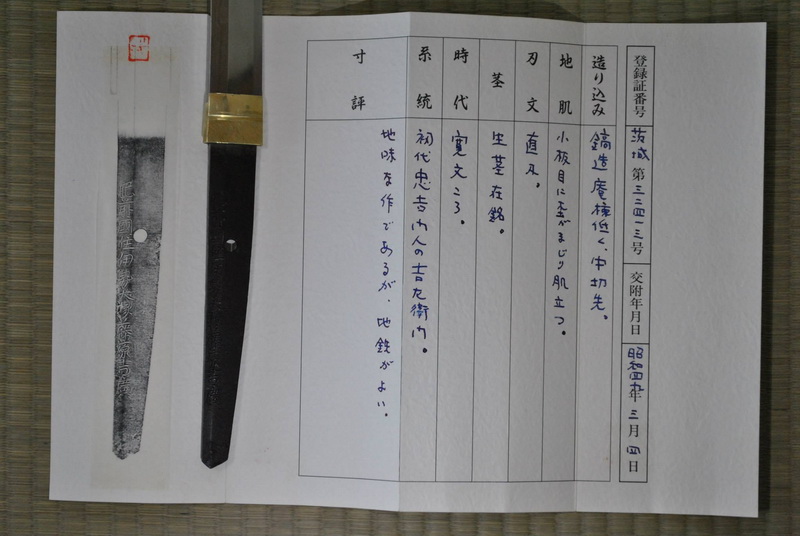 登録証番号 茨城 第三二四一三号 交附年月日 昭和四九年三月四日
造り込み 鎬造庵棟低く、中切先。
地肌 小板目に杢がまじり肌立つ。
刃文 直刃。
茎 生茎在銘。
時代 寛文ころ。
系統 初代忠吉門人の吉左衛門。
寸評 地味な作であるが、地鉄がよい。